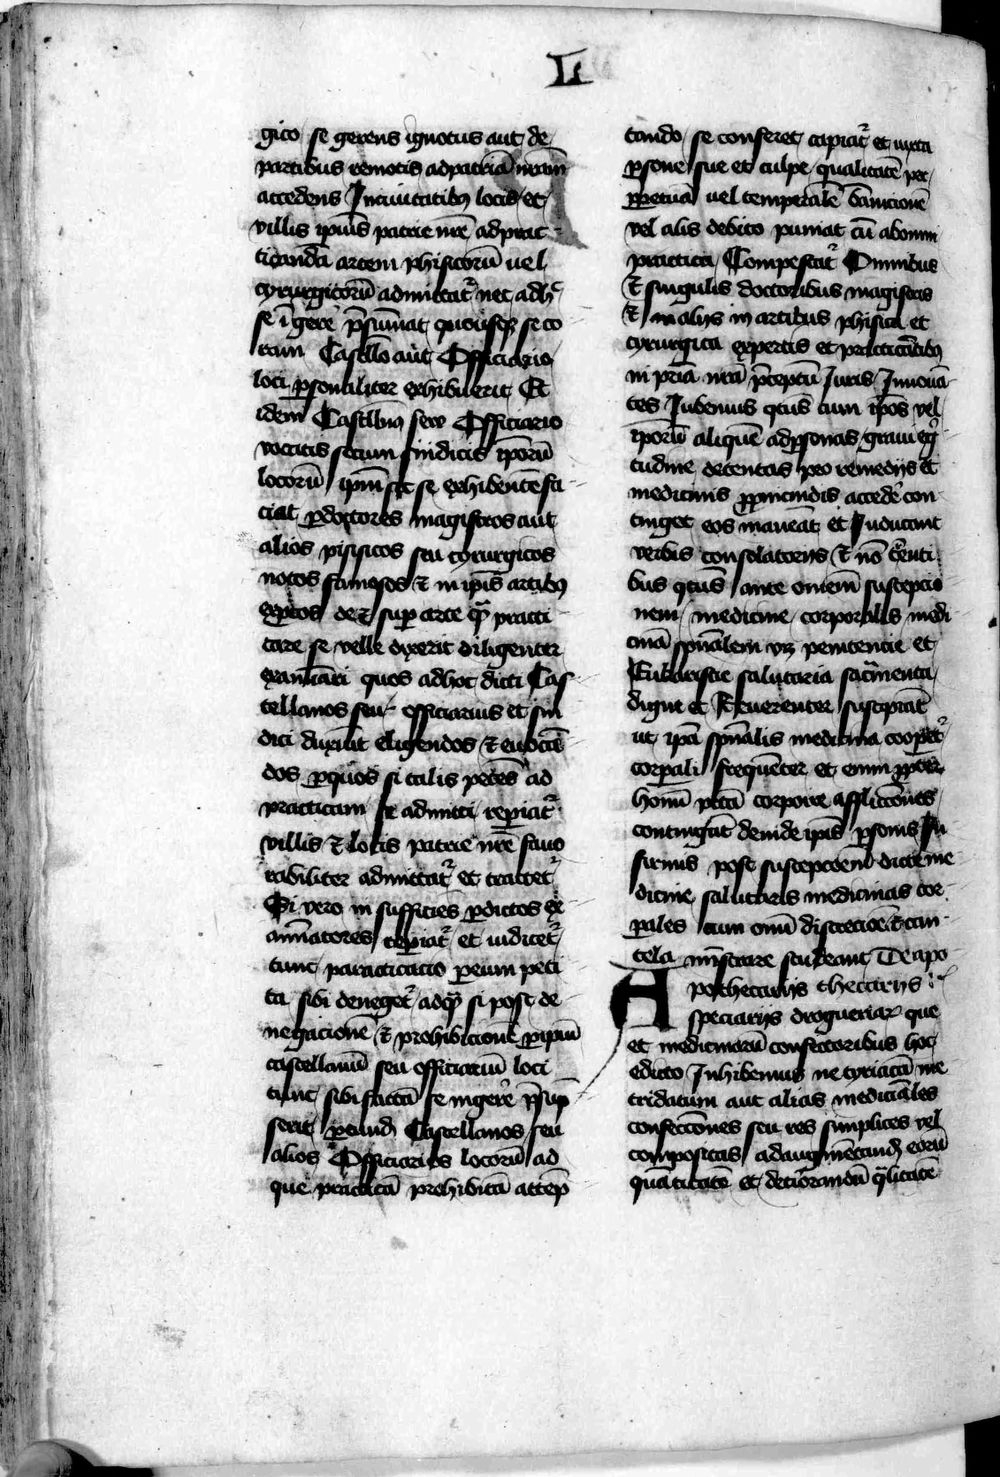 L
gico se gerens ignotus aut de
partibus remotis ad patriā nrām
accedens In ciuitatibȝ locis et
villis ipsius patrie nrē ad prac
ticandā artem phisicorū uel
cyrurgicorū admittatr̄ nec adhc̄
se īgerē p̄sumat quousqȝ se co
ram Castellō aut Officiario
loci p̱sonaliter exhibuerit Et
idem Castellnus seu Officiario
vocatis secum sindicis ip̄orū
locorū ip̄m sic se exhibentē fa
ciat p̱ doctores magistros aut
alios phisicos seu cyrurgicos
notos famosos ⁊ in ip̄is artibȝ
exp̱tos de ⁊ sup̱ arte quā practi
care se velle dixerit diligenter
examīari quos ad hoc dicti Cas
tellanos seu officiarius et sin
dici duxerīt eligendos ⁊ euocā
dos p̱ quos si talis petēs ad
practicam se admitti rep̱iatr̄
villis ⁊ locis patrie nrē fauo
rabiliter admittatr̄ et tractetr̄
Si vero in sufficiēs p̱ dictos ex
amīatores rep̱iatr̄ et iudicetr̄
tunc practicatio p̱ eum peti
ta sibi denegetr̄ ad qȝ si post de
negacionē ⁊ prohibicionē p̱ ip̄um
castellanū seu officiariū loci
tunc sibi factā se ingerē p̄sūp
serit p̱ eund Castellanos seu
alios Officiarios locorū ad
que practicā prohibitā attēp
tando se conferet capiatr̄ et iuxta
p̱sone sue et culpe qualitatē per
p̱petuā uel temporalē bāniconē
vel alīs debito puniat cū abomni
practica Compescatr̄ Omnibus
⁊ singulis doctoribus magistris
⁊ in alijs in artibus phisica et
cyrurgica expertis et practicātibȝ
in pr̄ia nrā p̄ceptū Iuris Innouā
tes Iubemus qtūs cum ip̄os vel
ip̄orū aliquē ad p̱sonas graui eg
tudine detentas pro remedijs et
medicinis p̱piciendis accedē con
tinget eos maneāt et Inducant
verbis consolatorijs ⁊ nō t̄renti
bus qtūs ante omēm suscepcio
nem medicine corporalis medi
cinā spūalem vȝ penitentie et
Eukaristie salutaria sacramenta
digne et Reuerenter suscipiāt
ut ip̄a spūalis medicina coop̱etr̄
corp̱ali frequēter et enim pp̱ter
homī pctā corpore afflicciōnes
contingāt deinde ip̄is p̱sonis In
firmis post suscepcoēm dicte me
dicine salutaris medicinas cor
p̱ales cum omī discrecioē ⁊ cau
tela mīstrare studeant De apo
pothecarijs thecarijs
A speciarijs drogueriaꝝ que
et medicinarū confectoribus hoc
edicto Inhibemus ne tyriacā me
tridatum aut alias medicīales
confecciōnes seu res simplices vel
compositas ad augmētand eorū
quātitatē et deteriorandā qlitatē